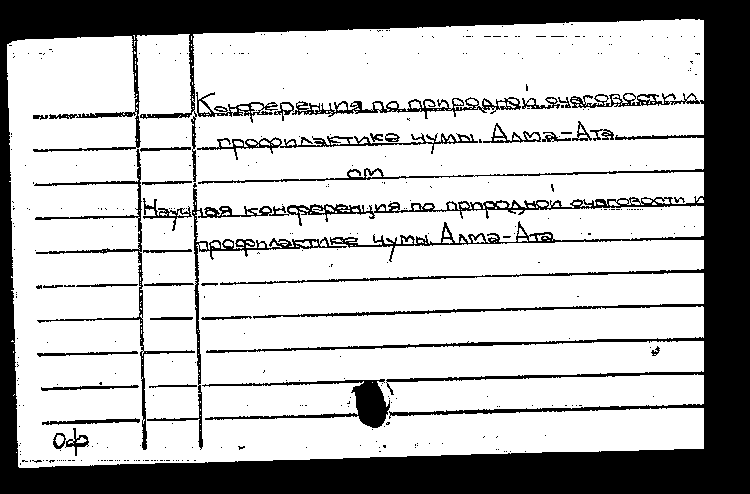 Конференция по природной очаговости и
профилактике чумы. Алма-Ата.
см
Научная конференция по природной очаговости и
профилактике чумы. Алма-Ата
Оф